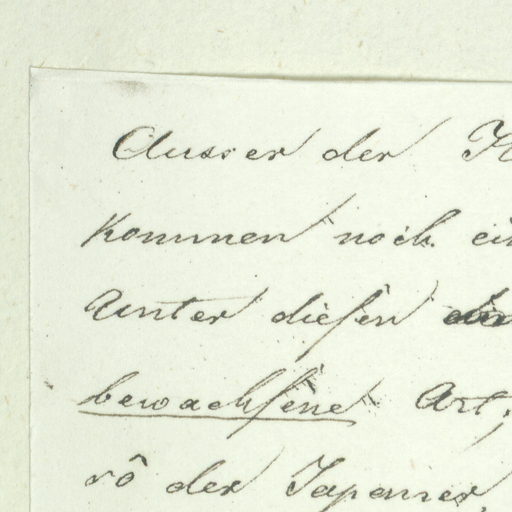 Ausser der
kommen noch
Unter diesen
bewachsene Art,
rô der Japaner,